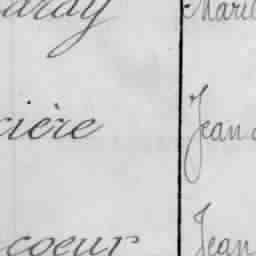 ardy Marie
cière Jean
coeur Jean